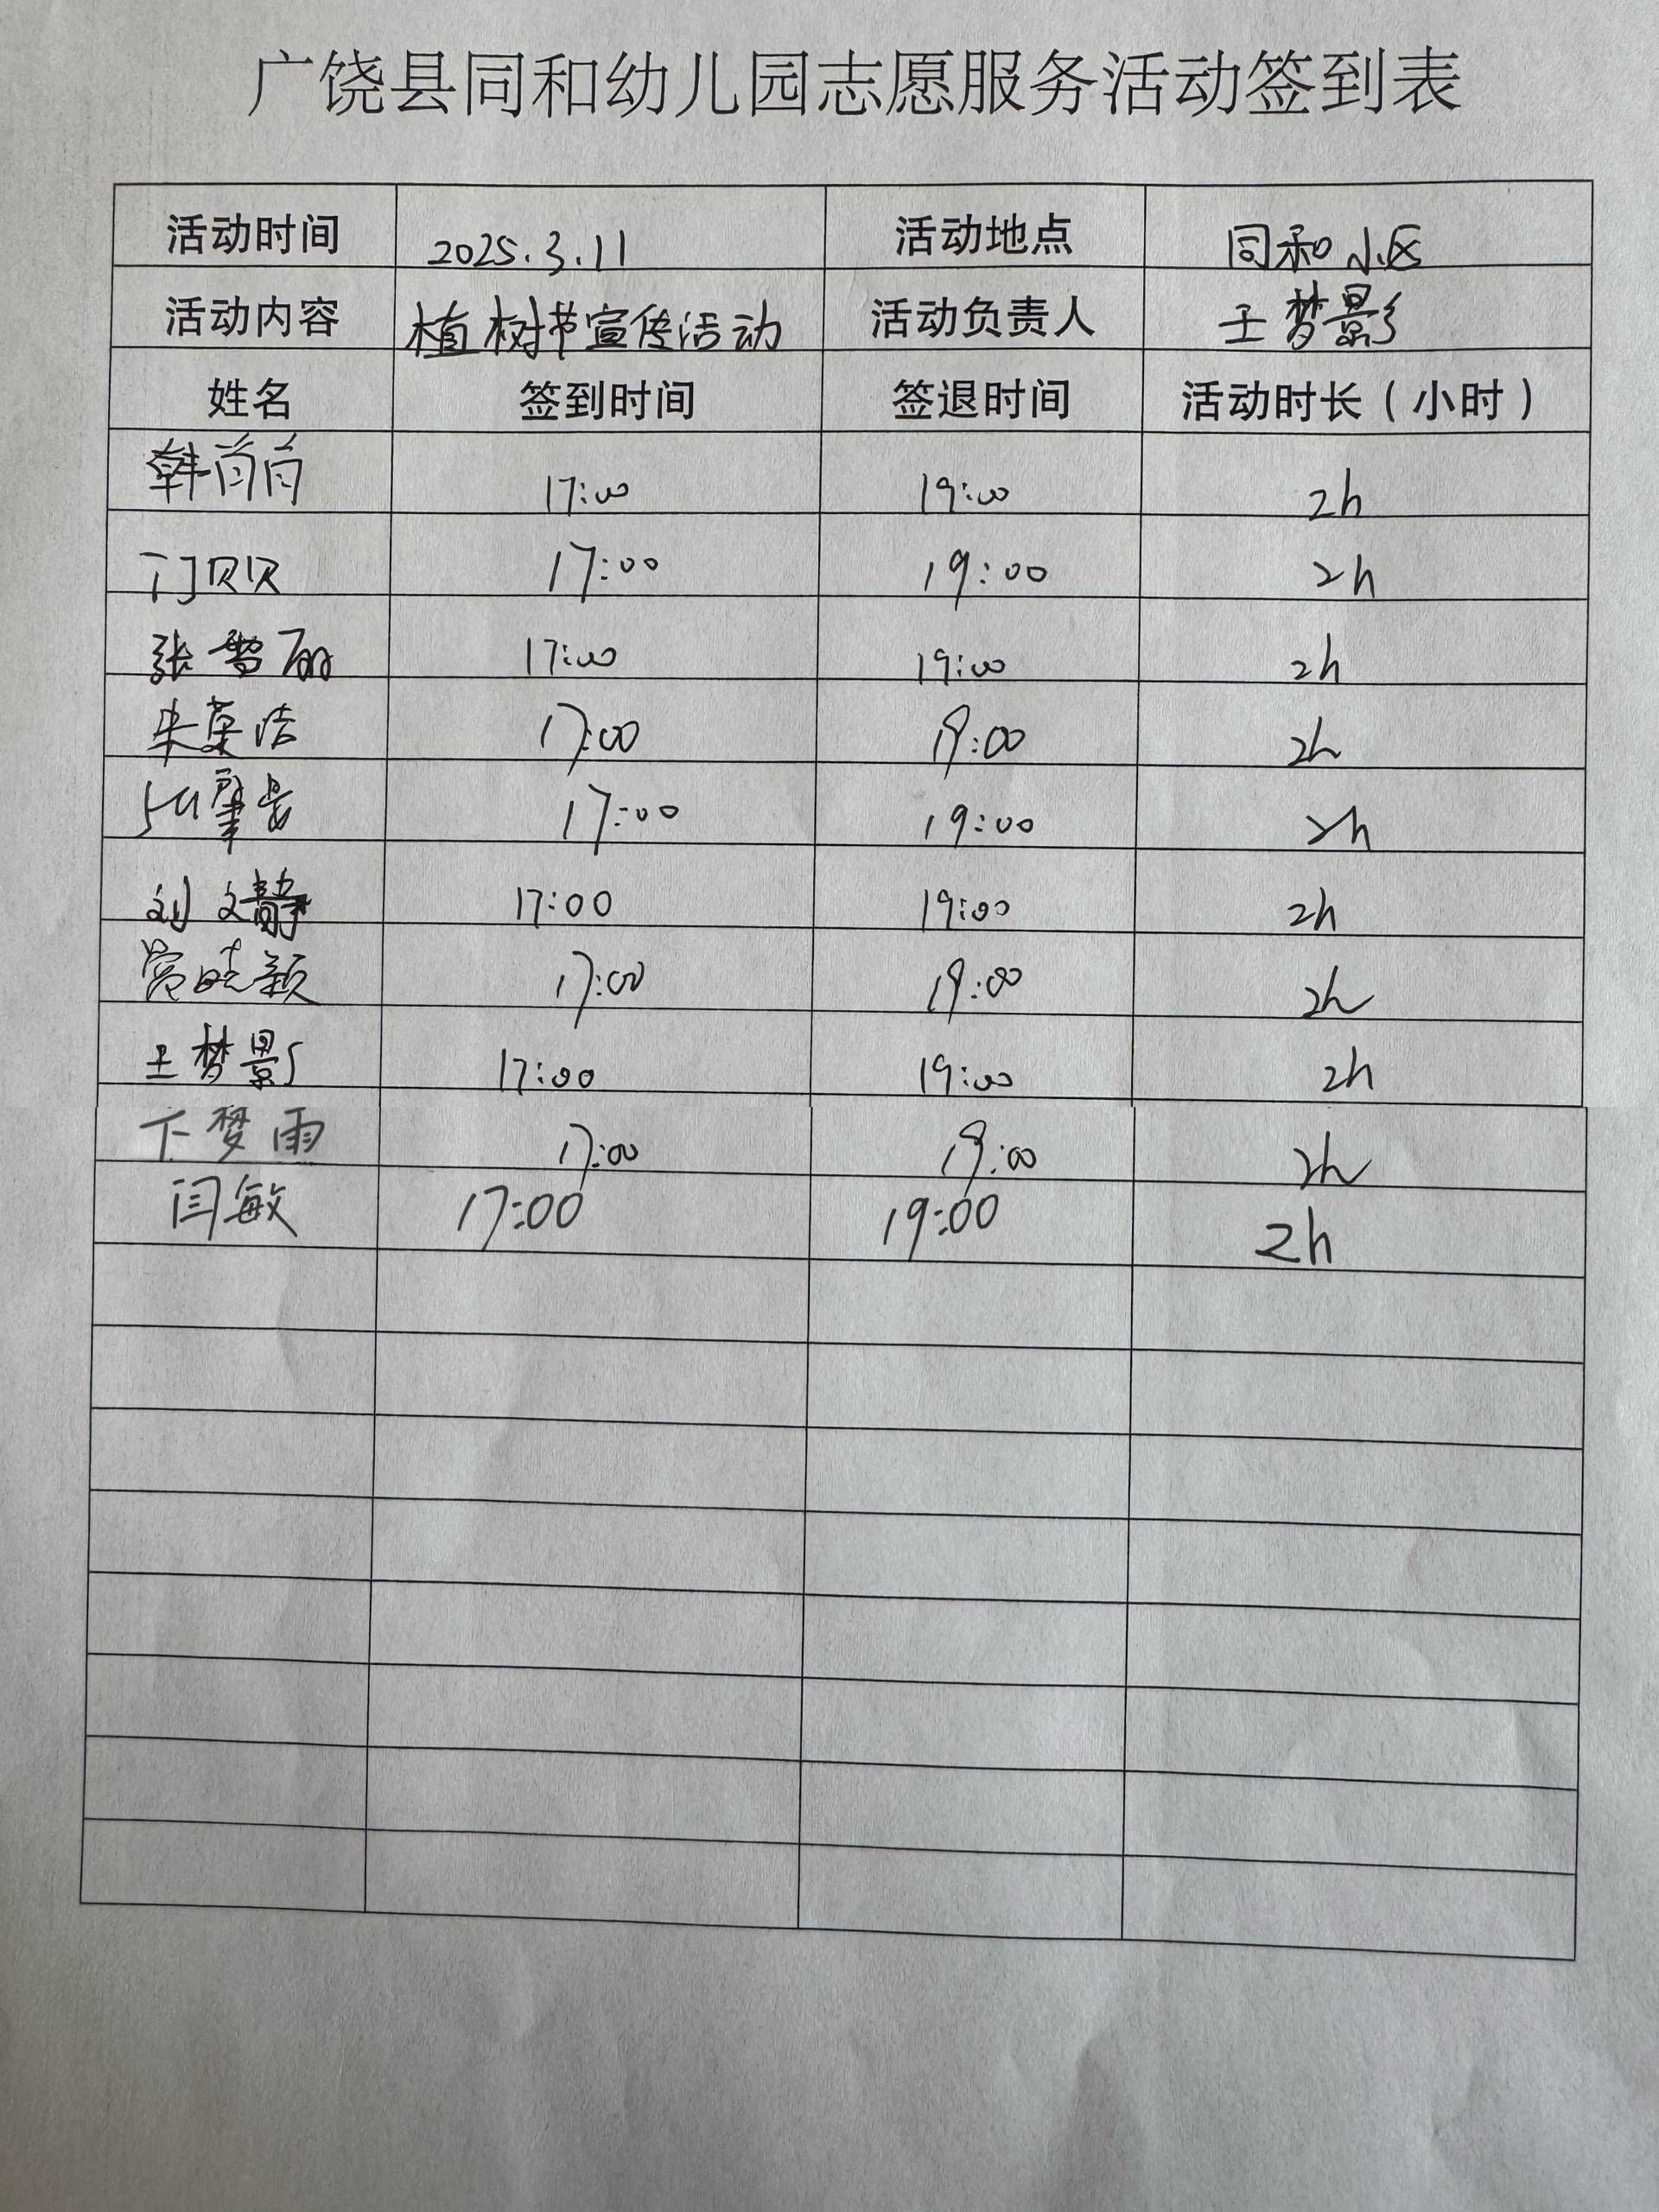 广饶县同和幼儿园志愿服务活动签到表
活动时间 2025.3.11 活动地点 同和小区
活动内容 植树节宣传活动 活动负责人 王梦影
姓名 签到时间 签退时间 活动时长（小时）
韩肖肖 17:00 19:00 2h
门贝贝 17:00 19:00 2h
张雪丽 17:00 19:00 2h
朱英洁 17:00 19:00 2h
17:00 19:00 2h
刘文静 17:00 19:00 2h
晓颖 17:00 19:00 2h
王梦影 17:00 19:00 2h
卞梦雨 17:00 19:00 2h
闫敏 17:00 19:00 2h